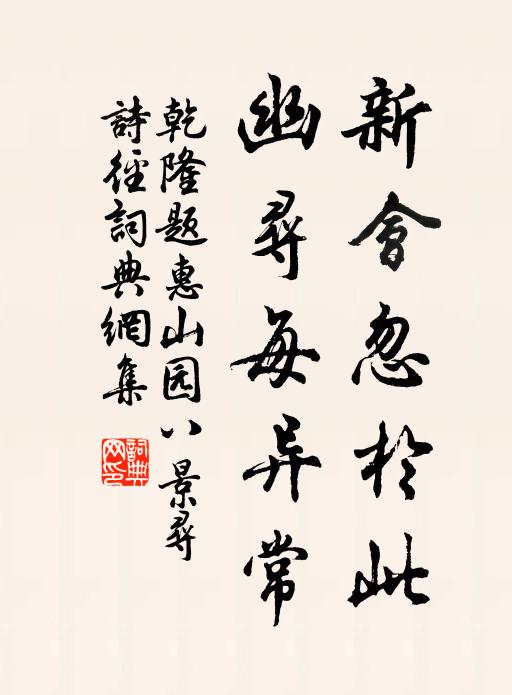 新會忽於此
幽尋每异常
乾隆题惠山园八景尋
詩徑詞典網集
詞典
网印